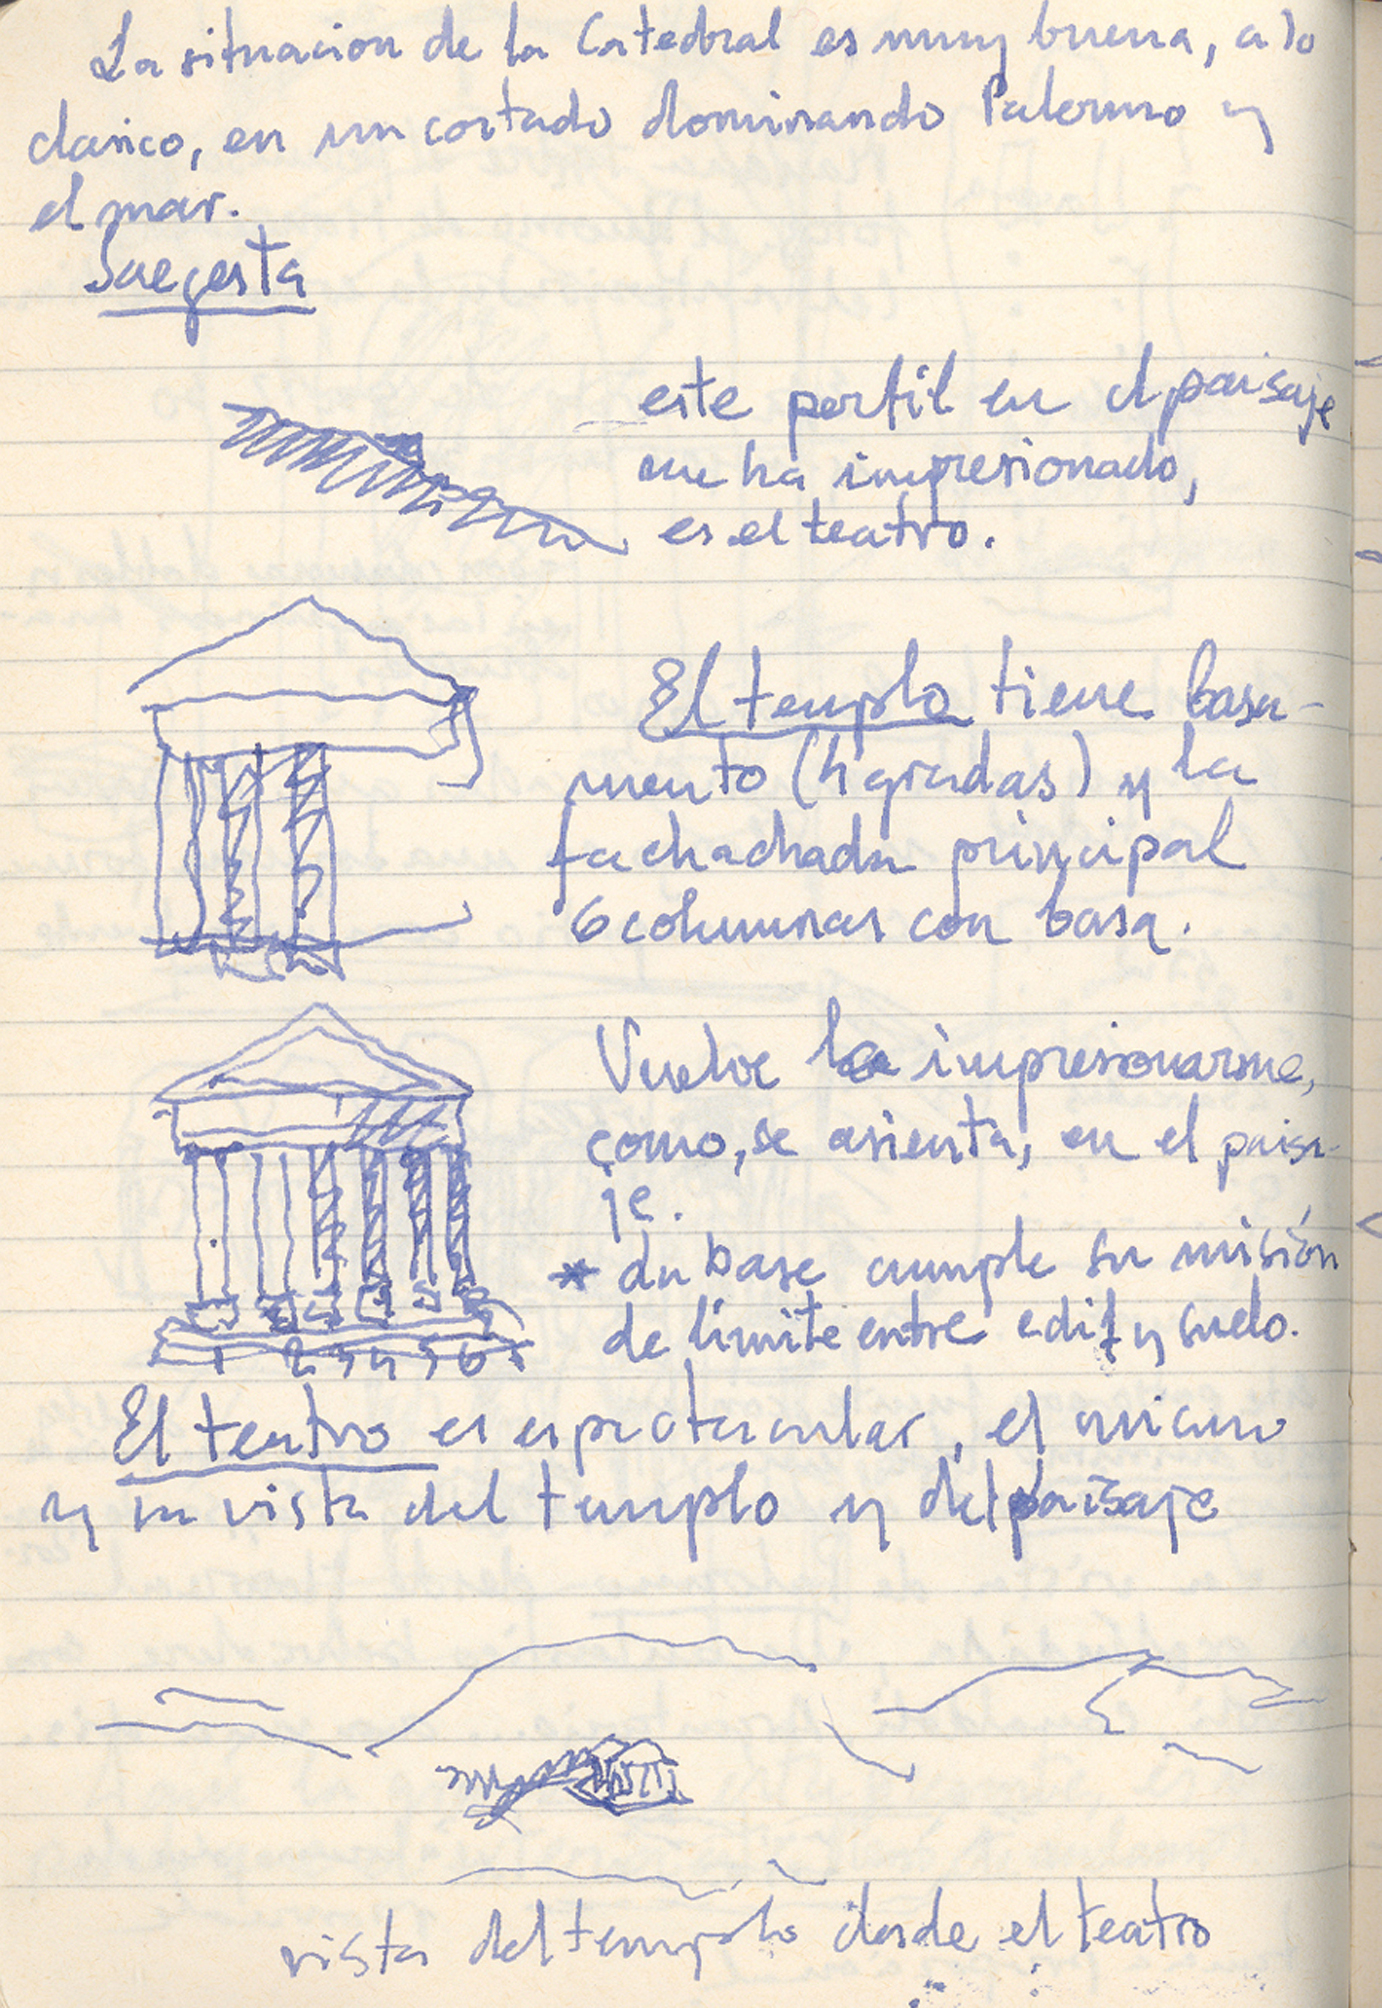 La situacion de la Catedral es muy buena, a lo
clasico, en un cortado dominando Palermo y
el mar.
Saegesta
este perfil en el paisaje
me ha impresionado,
es el teatro.
El templo tiene basa-
mento (4 gradas) y la
fachachada principal
6 columnas con basa.
Vuelve a impresionarme,
como, se asienta, en el paisa-
je.
* la base cumple su misión
de límite entre edif y suelo.
1 2 3 4 5 6
El teatro es espectacular, el mismo
y su vista del templo y del paisaje
vista del templo desde el teatro